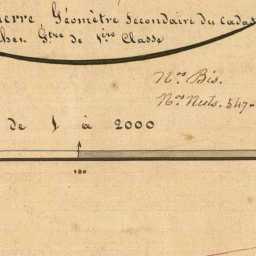 ierre, Géomètre Secondaire du Cadas
cher. G.tre de 1.ère Classe
N.os Bis.
N.os Nuls. 547-
de 1 à 2000
100